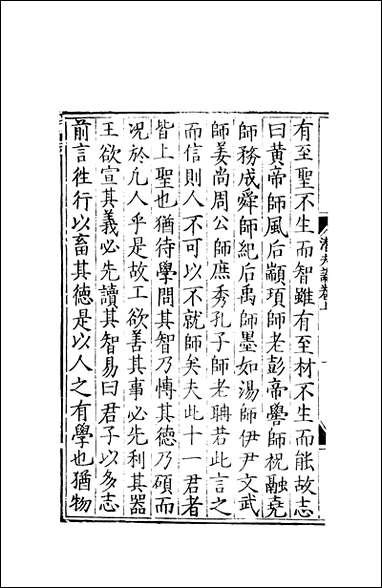 潛夫論卷上
一
有至聖不生而智雖有至材不生而能故志
曰黃帝師風后顓頊師老彭帝嚳師祝融堯
師務成舜師紀后禹師墨如湯師伊尹文武
師姜尚周公師庶秀孔子師老聃若此言之
而信則人不可以不就師矣夫此十一君者
皆上聖也猶待學問其智乃愽其德乃碩而
况於凡人乎是故工欲善其事必先利其器
王欲宣其義必先讀其智易曰君子以多志
前言徃行以畜其德是以人之有學也猶物